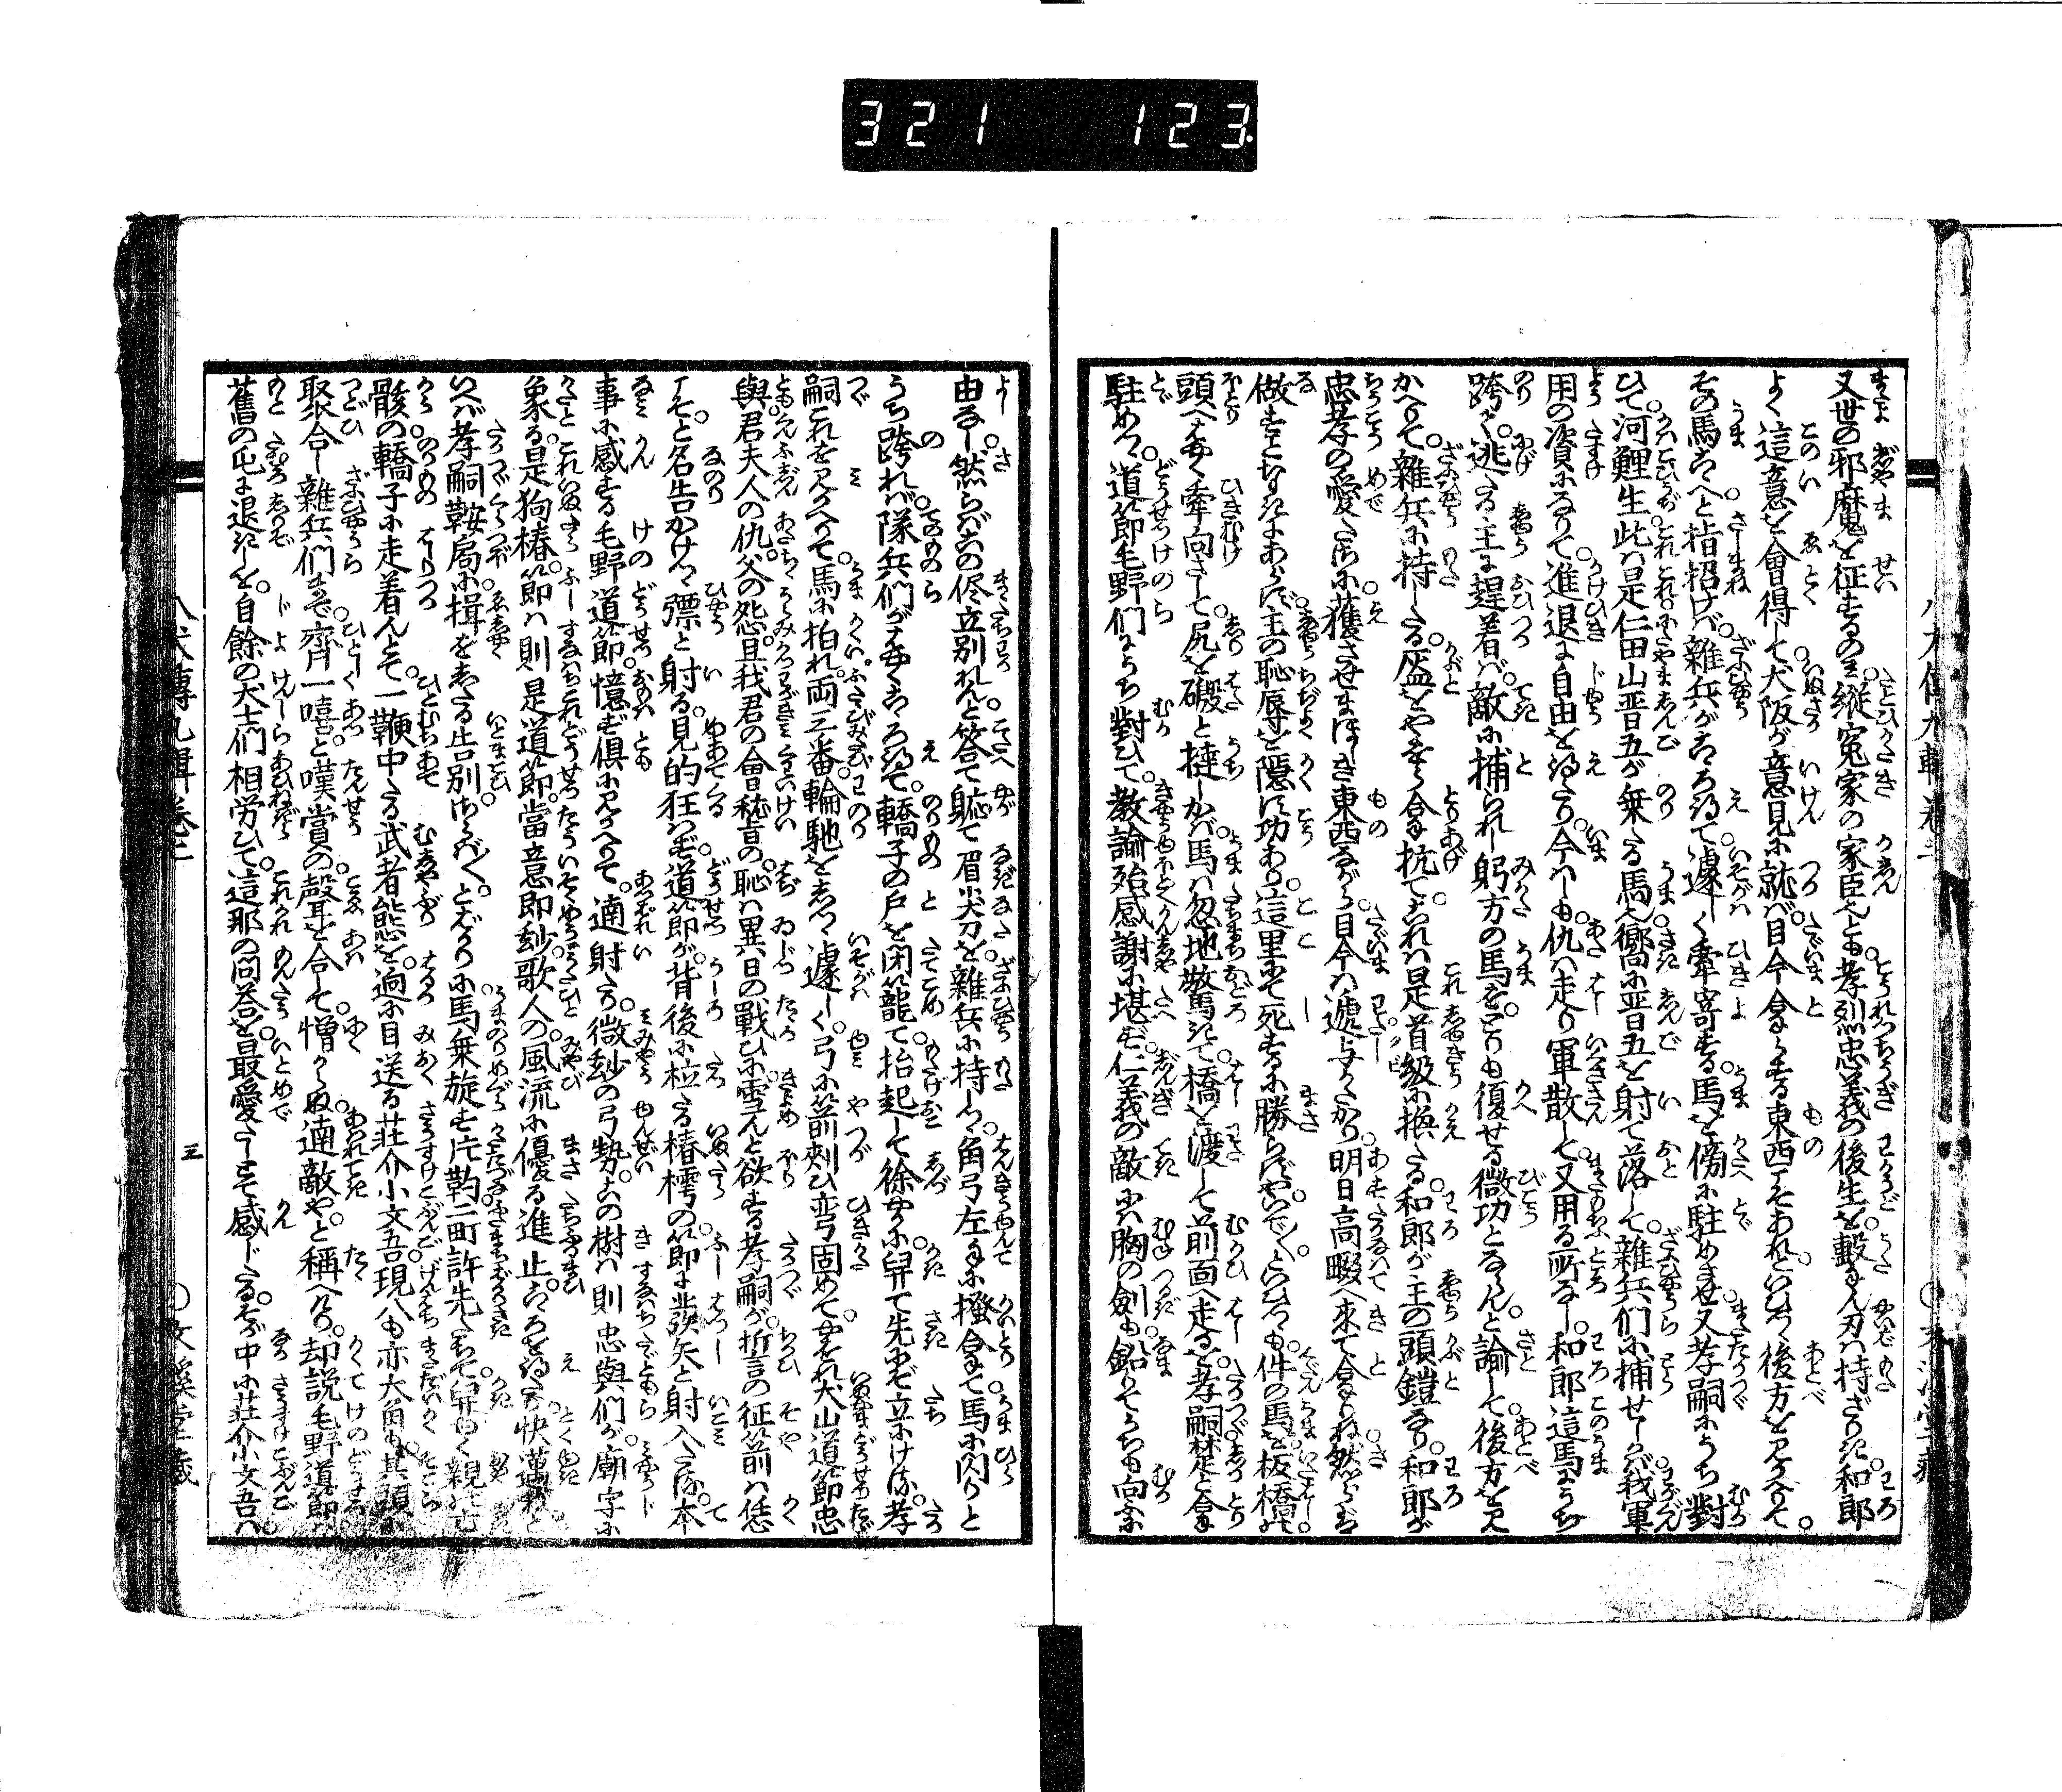 321 123
又世の邪魔を征するのミ縦寃家の家臣也とも孝烈忠義の後生を轂るん刃ハ持ざりき和郎
よく這意を會得して犬阪が意見に就バ目今拿らする東西こそあれといひつゝ後方を見かへりて
その馬こゝへと指招けバ雜兵がこゝろ得て遽しく牽寄する馬を傍に駐めさせ又孝嗣にうち對
ひて河鯉生此ハ是仁田山晋五が乗たる馬也嚮に晋五を射て落して雜兵们に捕せしかバ我軍
用の資になりて進退に自由を得たり今ハしも仇ハ走り軍散して又用る所なし和郎這馬にうち
跨りて逃たる主に趕着バ敵に捕られし躬方の馬をとりも復せる微功とならんと諭して後方を見
かへりて雜兵に持したる盔をやをら合拿抗てこれハ是首級に換たる和郎が主の頭鎧なり和郎が
忠孝の愛たさに獲させまほしき東西ながら目今ハ遞与しかたかり明日高畷へ来て拿りね然らバ
做すことなきにあらず主の恥辱を隱す功あり這里にて死するに勝らずやいでといひつゝも件の馬を板橋の
頭へ牽向さして尻を礑と撻しかバ馬ハ忽地驚きて橋を渡して前面へ走るを孝嗣楚と拿
駐めつ道節毛野们にうち對ひて教諭殆感謝に堪ず仁義の敵にハ胸の劍も鉛りてうちも向ふ
由なし然らバこの侭立別れんと答て軈て眉尖刀を雜兵に持しつ角弓左手に搔拿て馬に閃りと
うち跨れバ隊兵们がこゝろ得て轎子の戸を閉籠て抬起して徐やかに舁て先にぞ立にける孝
嗣これを見かへりて馬に拍れ両三番輪馳をしつゝ遽しく弓に箭刹ひ彎固めてやをれ犬山道節忠
與君夫人の仇父の怨且我君の會稽の恥ハ異日の戰ひに雪んと欲する孝嗣が折言の征箭ハ恁
こそと名告かけつゝ彍と射る見的狂ハず道節が背後に柆たる椿樗の節に発矢と射入たる本
事に感する毛野道節憶ず倶に見かへりて遖射たり微妙の弓勢この樹ハ則忠與們が廟字に
象る是狗椿節ハ則是道節當意即妙歌人の風流に優る進止こゝろを得たり快薀藉と
いへバ孝嗣鞍局に揖をしたる告別さらばとばかりに馬乗旋せバ片靮二町許先だちて舁もて親の亡
骸の轎子に走着んとて一鞭中たる武者態を迥に目送る荘介小文吾現八も亦大角も其頭に
聚合し雜兵们まで齊一嘻と嘆賞の聲を合して憎からぬ遖敵やと稱へけり却説毛野道節ハ
舊の屯に退きしを自餘の犬士们相労ひて這那の問荅を最愛たしとて感じたるそが中に荘介小文吾ハ
八犬傳九輯巻三
三
文溪堂藏